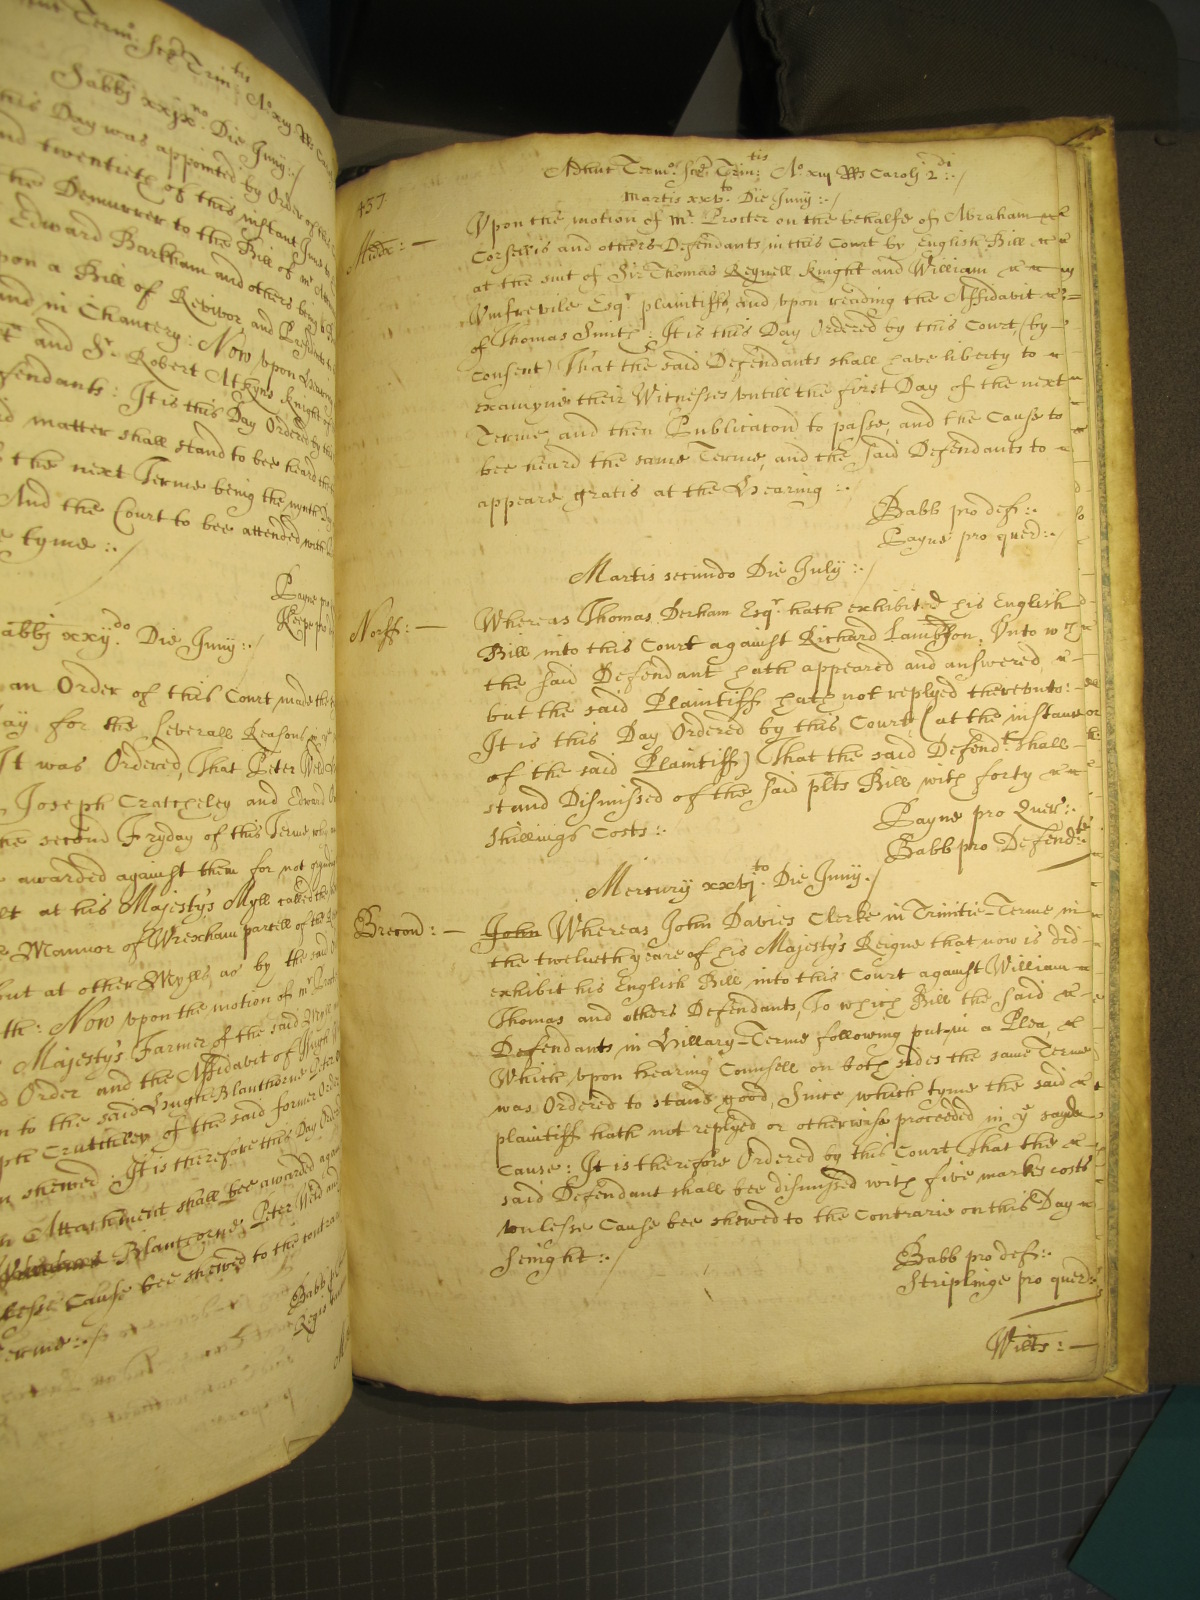 Term: Sce Trin: tis Ao xiij Rs
Sabbi xxix no Die Junij :/
this Day was appointed by Order of
and twentieth of this instant June
the Demurrer to the Bill of mr
Edward Barkham and others being
upon a Bill of Revivor, and
and in Chancery: Now upon
and Sr. Robert Atkyns Knight of
fendants: It is this Day Ordered by this
matter shall stand to bee heard the
the next Terme being the nynth Day
And the Court to bee attended with
tyme :/
Payne pro
Keepe pro
abbi xxij do Die Junij :/
an Order of this Court made the
ay, for the severall Reasons in
It was Ordered, That Peter Weld
Joseph Cratcheley and Edward
he second Fryday of this Terme
awarded against them for not
at his Majesty's Myll called the
Mannor of Wrexham parcell of the
but at other Mylls, as by the said
th: Now upon the motion of mr
Majesty's Farmer of the said Myll
Order and the Affidavit of Hugh
n to the said Hugh Blanthorne Peter
Crutchley of the said former Order
n shewed. It is therefore this Day
Attachment shall bee awarded
Blanthorne, Peter Weld and
lesse Cause bee shewed to the contra
Terme :/
Babb
Regis
437
Adhuc Term o. Sce Trin: tis Ao xiij Rs Caroli 2 di :/
Martis xxv to Die Junij :/
Middx : — Upon the motion of mr. Procter on the behalfe of Abraham
Corsellis and others Defendants in this Court by English Bill
at the suit of Sr. Thomas Reynell Knight and William
Umfrevile Esqr. plaintiffs, and upon reading the Affidavit
of Thomas Smith: It is this Day Ordered by this Court (by
consent) That the said Defendants shall have liberty to
examyne their Witnesses untill the first Day of the next
Terme, and then Publicacon to passe, and the Cause to
bee heard the same Terme, and the said Defendants to
appeare gratis at the Hearing :.
Babb pro def :.
Payne pro quer :/
Martis secundo Die July :/
Norff : — Whereas Thomas Derham Esqr. hath exhibited his English
Bill into this Court against Richard Lambson, Unto wch
the said Defendant hath appeared and answered,
but the said Plaintiff hath not replyed thereunto:
It is this Day Ordered by this Court (at the instance
of the said Plaintiff) That the said Defendt. shall
stand Dismissed of the said plts Bill with forty
shillings Costs :.
Payne pro Quer :.
Babb pro Defend te :.
Mercury xxvj to Die Junij :/
Brecon : — John Whereas John Davies Clerke in Trinitie-Terme in
the twelueth yeare of his Majesty's Reigne that now is did
exhibit his English Bill into this Court against William
Thomas and others Defendants, To which Bill the said
Defendants in Hillary-Terme following put in a Plea,
Which upon hearing Counsell on both sides the same Terme
was Ordered to stand good, Since which tyme the said
plaintiff hath not replyed or otherwise proceeded in ye sayd
Cause: It is therefore Ordered by this Court That the
said Defendant shall bee dismissed with five markes costs
unlesse Cause bee shewed to the Contrarie on this Day
Senight :/
Babb pro def :.
Striplinge pro quer :.
Wilts : —